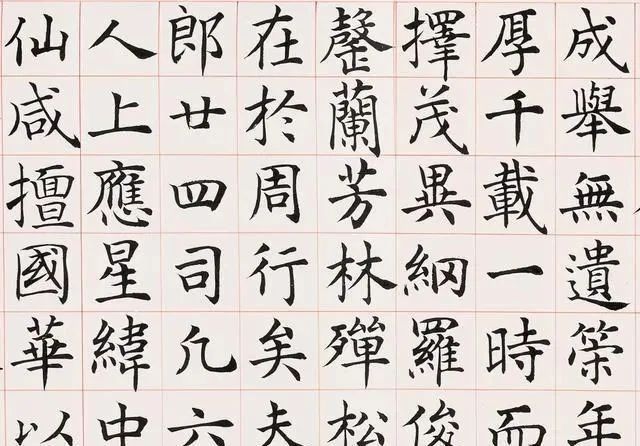 成舉無遺策年
厚千載一時而
擇茂異網羅俊
罄蘭芳林殫松
在於周行矣夫
郎廿四司凡六
人上應星緯中
仙咸擅國華以